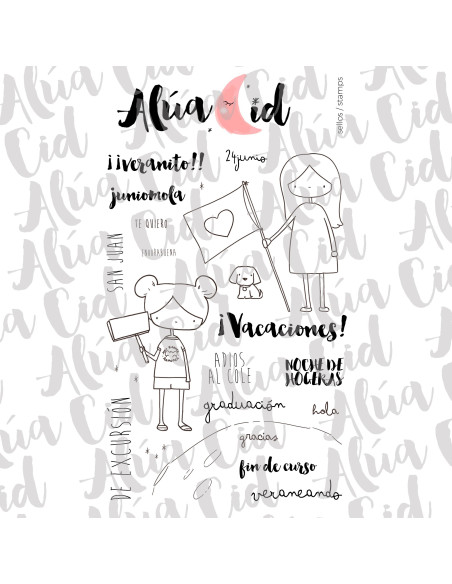 Alúa Cid
sellos / stamps
¡¡veranito!!
24junio
juniomola
TE QUIERO
ENHORABUENA
SAN JUAN
¡Vacaciones!
ADIOS
AL COLE
NOCHE DE
HOGERAS
graduación
hola
DE EXCURSIÓN
gracias
fin de curso
veraneando